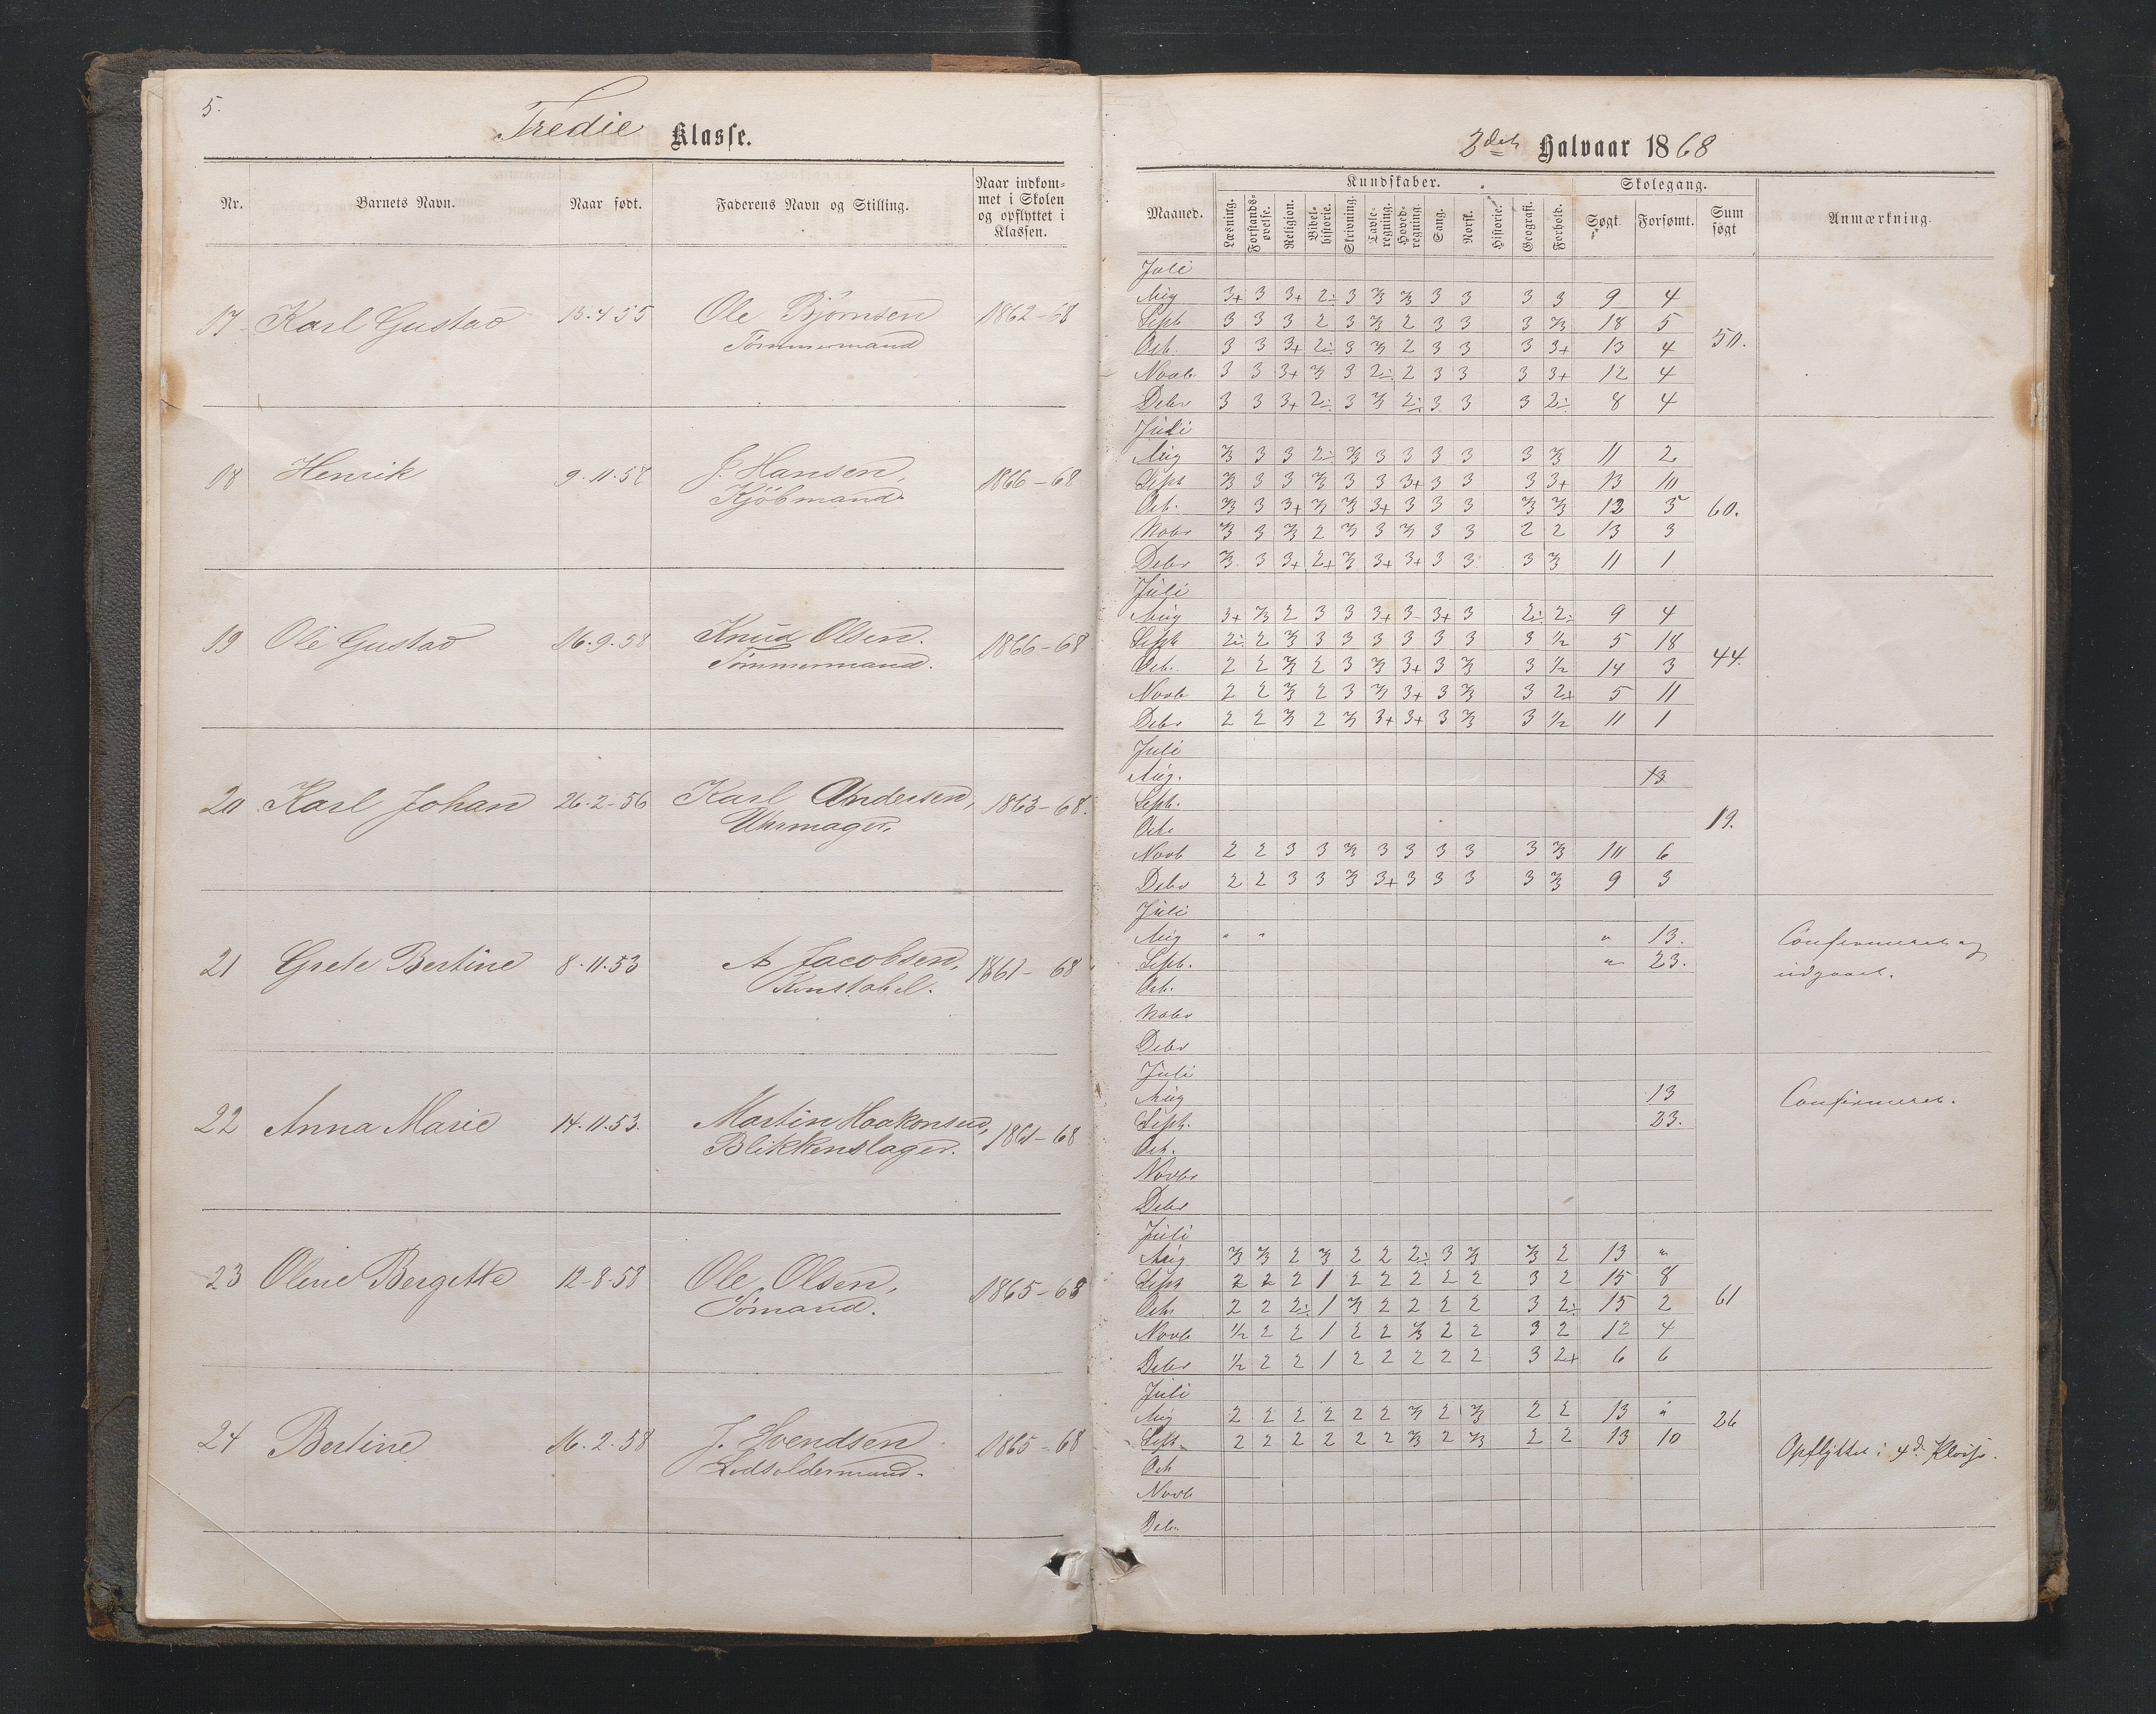 5.
Tredie Klasse.
Nr. Barnets Navn. Naar født. Faderens Navn og Stilling. Naar indkom-
met i Skolen
og opflyttet i
Klassen.
17 Karl Gustav 13.4 55 Ole Bjørnsen 1862-68
Tømmermand
18 Henrik 9.11.58 J. Hansen, 1866-68
Kjöbmand.
19 Ole Gustav 16.9.58 Knud Olsen. 1866-68
Tømmermand.
20 Karl Johan 26-2-56 Karl Andersen, 1863-68.
Uhrmager.
21 Grete Bertine 8.11.53 A Jacobsen, 1861-68
Konstabel.
22 Anna Marie 14.11.53. Martin Haakonsen, 1861-68
Blikkenslager.
23 Oline Bergitte 12-8.58 Ole Olsen, 1865-68
Sømand.
24 Bertine 16.2.58 J. Svendsen 1865-68
Lodsoldermand.
2det Halvaar 1868
Maaned. Kundskaber. Skolegang. Sum søgt Anmærkning.
Læsning. Forstands-øvelse. Religion. Bibel-historie. Skrivning. Tavle-regning. Hoved-regning. Sang. Norsk. Historie. Geografi. Forhold. Søgt. Forsømt.
Juli
Aug 3+ 3 3+ 2÷ 3 2/3 2/3 3 3 3 3 9 4
Sept 3 3 3 2 3 2/3 2 3 3 3 2/3 18 5
Oct. 3 3 3+ 2÷ 3 2/3 2 3 3 3 3+ 13 4 50.
Novb. 3 3 3+ 2/3 3 2÷ 2 3 3 3 3+ 12 4
Debr 3 3 3+ 2÷ 3 2/3 2÷ 3 3 3 2÷ 8 4
Juli
Aug 2/3 3 3 2÷ 2/3 3 3 3 3 3 2/3 11 2
Sept 2/3 3 3 2/3 3 3 3+ 3 3 3 3+ 13 10
Oct. 2/3 3 3+ 2/3 2/3 3+ 3 3 3 2/3 2/3 12 5 60.
Nobr 2/3 3 2/3 2 2/3 3 2/3 3 3 2 2 13 3
Debr 2/3 3 3+ 2+ 2/3 3+ 3+ 3 3 3 2/3 11 1
Juli
Aug 3+ 2/3 2 3 3 3+ 3 3+ 3 2÷ 2÷ 9 4
Sept 2÷ 2 2/3 3 3 3 3 3 3 3 1/2 5 18
Oct. 2 2 2/3 2 3 2/3 3+ 3 2/3 3 1/2 14 3 44.
Novb 2 2 2/3 2 3 2/3 3+ 3 2/3 3 2+ 5 11
Debr 2 2 2/3 2 2/3 3+ 3+ 3 2/3 3 1/2 11 1
Juli
Aug. 13
Sept.
Octr 19.
Novb 2 2 3 3 2/3 3 3 3 3 3 2/3 10 6
Debr 2 2 3 3 2/3 3+ 3 3 3 3 2/3 9 3
Juli
Aug " " " 13. Confirmeret og
Sept. " 23. udgaaet.
Oct.
Nobr
Debr
Juli
Aug 13 Confirmeret.
Sept. 23.
Oct.
Novbr
Debr
Juli
Aug 2/3 2/3 2 2/3 2 2 2÷ 3 2/3 2/3 2 13 "
Sept 2 2 2 1 2 2 2 2 2 3 2 15 8
Octr 2 2 2÷ 1 2/3 2 2 2 2 3 2÷ 15 2 61
Novb 1/2 2 2 1 2 2 2/3 2 2 3 2 12 4
Debr 1/2 2 2 1 2 2 2 2 2 3 2+ 6 6
Juli
Aug 2 2 2 2 2 2 2/3 2 2/3 2 2 13 " 26
Sept. 2 2 2 2 2 2 2/3 2 2/3 2 2 13 10 Opflyttet i 4d. Klasse.
Oct
Novb
Debr